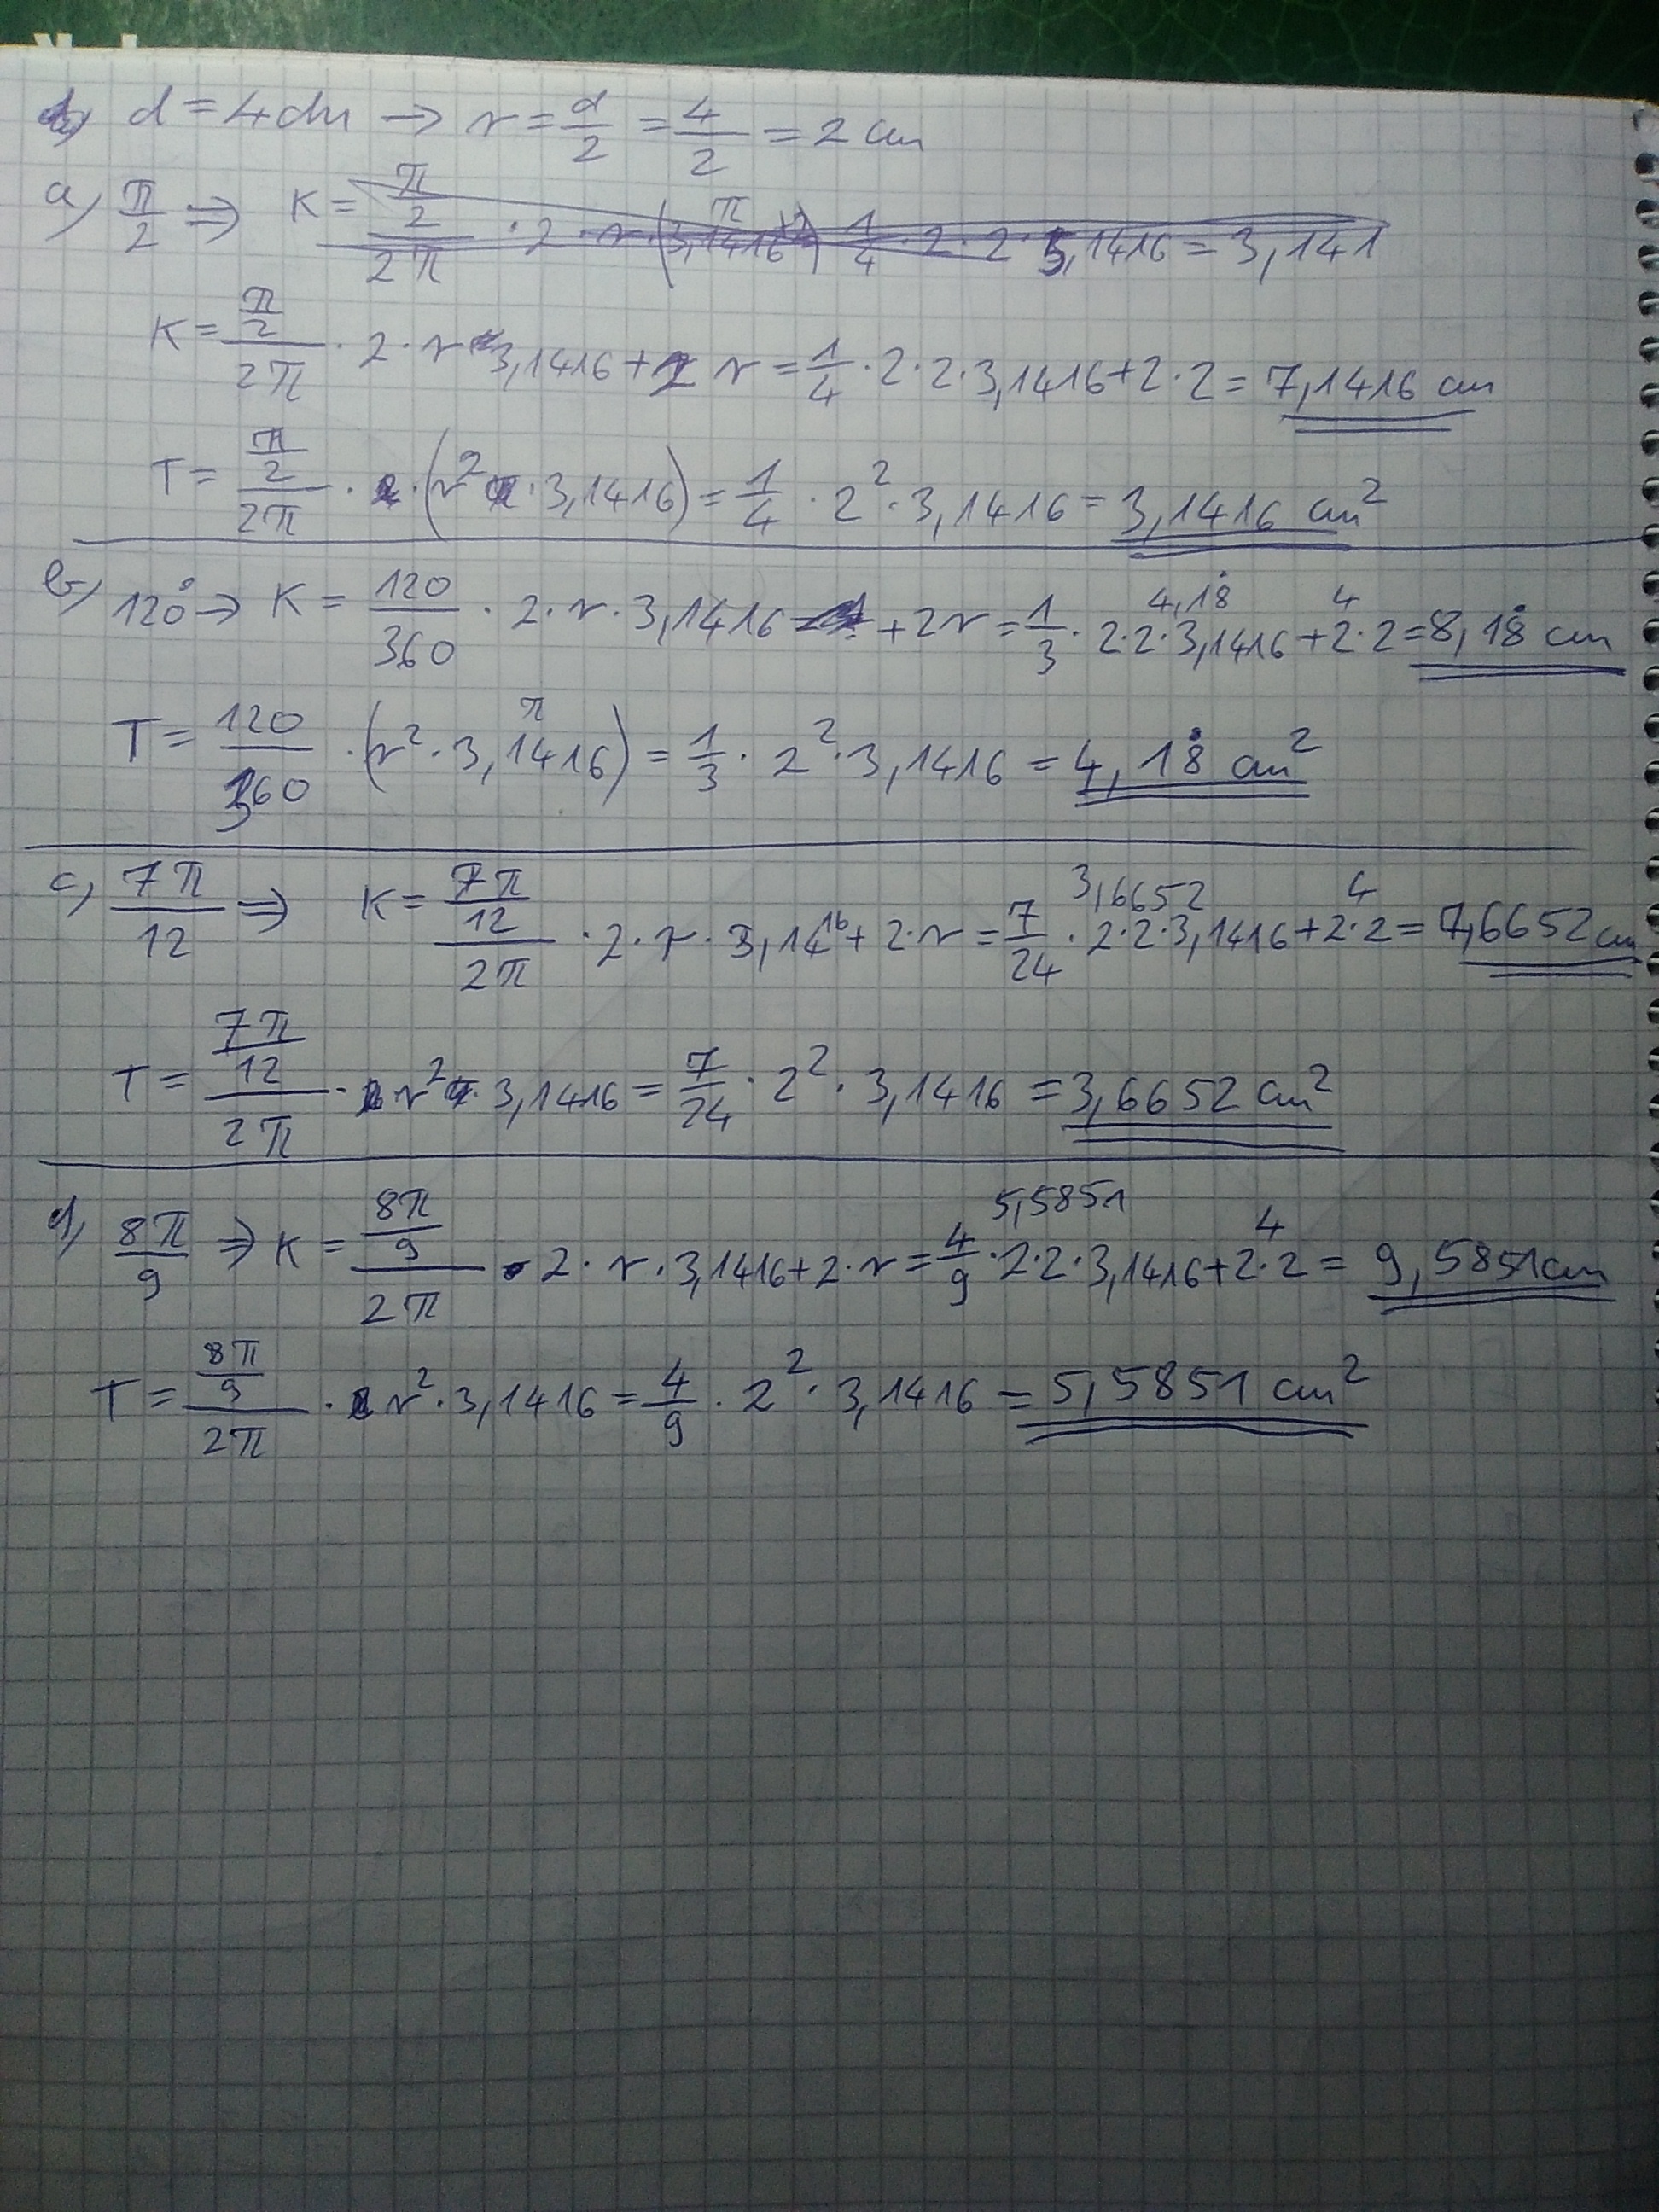 d = 4 cm → r = d/2 = 4/2 = 2 cm
a) π/2 ⇒ K = (π/2)/(2π) · 2 · r · (3,1416) 1/4 · 2 · 2 · 3,1416 = 3,141
K = (π/2)/(2π) · 2 · r · 3,1416 + 2 r = 1/4 · 2 · 2 · 3,1416 + 2 · 2 = 7,1416 cm
T = (π/2)/(2π) · (r² · 3,1416) = 1/4 · 2² · 3,1416 = 3,1416 cm²
b) 120° → K = 120/360 · 2 · r · 3,1416 + 2r = 1/3 · 2 · 2 · 3,1416 + 2 · 2 = 8,18̇ cm
4,18̇ 4
T = 120/360 · (r² · 3,1416) = 1/3 · 2² · 3,1416 = 4,18̇ cm²
π
c) 7π/12 ⇒ K = (7π/12)/(2π) · 2 · r · 3,1416 + 2 · r = 7/24 · 2 · 2 · 3,1416 + 2 · 2 = 7,6652 cm
3,6652 4
T = (7π/12)/(2π) · r² · 3,1416 = 7/24 · 2² · 3,1416 = 3,6652 cm²
d) 8π/9 ⇒ K = (8π/9)/(2π) · 2 · r · 3,1416 + 2 · r = 4/9 · 2 · 2 · 3,1416 + 2 · 2 = 9,5851 cm
5,5851 4
T = (8π/9)/(2π) · r² · 3,1416 = 4/9 · 2² · 3,1416 = 5,5851 cm²